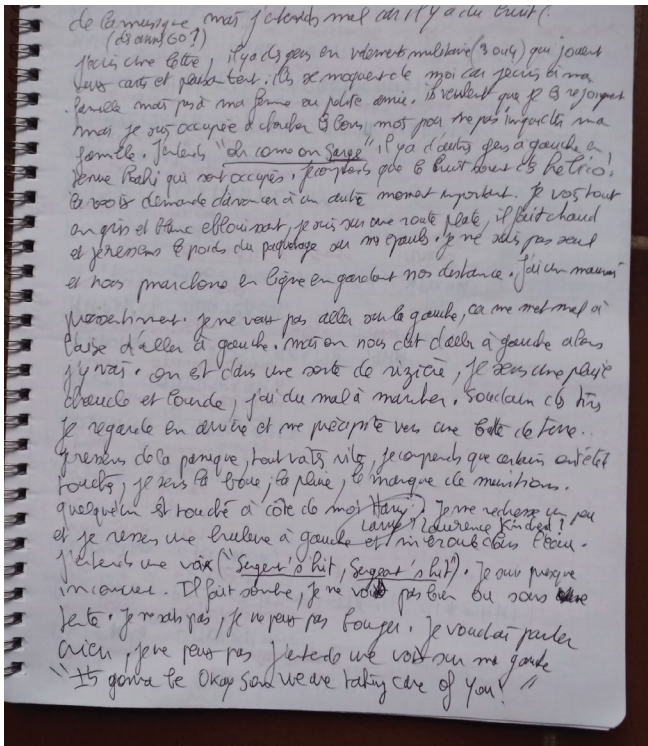 de la musique mais j'entends mal car il y a du bruit.
(ds années 60?)
j'écris une lettre, il y a des gens en vêtements militaire (3 ou 4) qui jouent
aux cartes et plaisantent. ils se moquent de moi car j'écris à ma
famille mais pas à ma femme ou petite amie. ils veulent que je les rejoignent
mais je suis occupée à chercher les bons mots pour ne pas inquiéter ma
famille. J'entends "oh come on Sarge" il y a d'autres gens à gauche en
tenue Kaki qui sont occupés. je comprends que le bruit vient des hélico.
la voix demande d'avancer à un autre moment important. Je vois tout
en gris et blanc éblouissant, je suis sur une route plate, il fait chaud
et je ressens le poids du paquetage sur mes épaules. je ne suis pas seul
et nous marchons en ligne en gardant nos distance. J'ai un mauvais
pressentiment. je ne veux pas aller sur la gauche, ça me met mal à
l'aise d'aller à gauche. mais on nous dit d'aller à gauche alors
j'y vais. on est dans une sorte de rizière, je sens une pluie
chaude et lourde, j'ai du mal à marcher. Soudain des tirs
je regarde en arrière et me précipite vers une butte de terre..
je ressens de la panique, tout va très vite, je comprends que certains ont été
touchés, je sens la boue, la pluie, le manque de munitions.
quelqu'un est touché à côté de moi Harry. Je me redresse un peu
Larry? Laurence Kindred?
et je ressens une brulure à gauche et m'écroule dans l'eau.
j'entends une voix ("Sergent's hit, Sergeant's hit"). Je suis presque
inconscient. Il fait sombre, je ne vois pas bien ou sous une
tente. Je ne sais pas, je ne peux pas bouger. je voudrais parler
crier, je ne peux pas j'entends une voix sur ma gauche
"It's gonna be Okay Son we are taking care of you!"